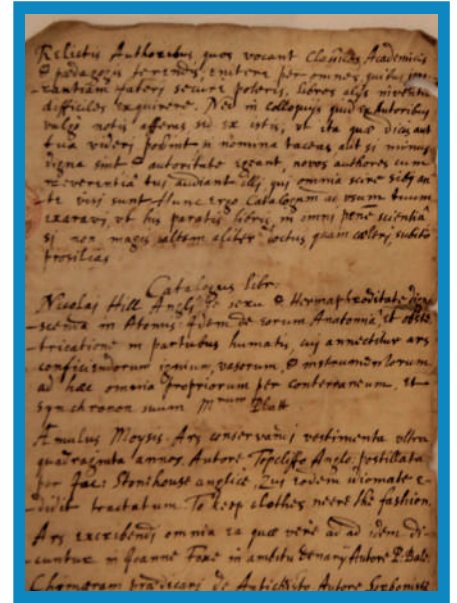 Relictis Authoribus quos vocant Classicos Academicis
& pedagogis terendis, enitere per omnes, quibus
-rantiam fateri secure poteris, libros alijs inventu
difficiles exquirere. Nec in colloquijs quid ex Autoribus
vulgo notis afferas sed ex istis, ut ita quæ dicis aut
tua videri possint si nomina taceas aut si minus
digna sint & autoritate egeant, novos authores cum
reverentiâ tui audiant illi, qui omnia scire sibj an-
te visi sunt. Hunc ergo Catalogum ad usum tuum
exaravi, ut his paratis libris, in omni penè scientiâ
si non magis saltem aliter doctus quam cæteri, subitò
prosilias
Catalogus libr:
Nicolaj Hill Angli de sexu & Hermaphroditate digno
scenda in Atomis: Idem de eorum Anatomia, et obste
-tricatione in partubus humatis, cuj annectitur ars
conficiendorum ignium, vasorum, & instrumentorum
ad hæc omnia propriorum per conterraneum, et
synchronon suum Mrum Platt
Æmulus Moysis. Ars conservandi vestimenta ultra
quadraginta annos. Autore Topcliffo Anglo: postillata
per Jac: Stonehouse anglicè, Qui eodem idiomate e-
-didit tractatum To keep clothes neere the fashion.
Ars exscribendi omnia ea quæ verè ad idem di-
cuntur in Joanne Foxe in ambitu denarij Autore P. Bale.
Chymæram prædicari de Antichristo Autore Sorbonistâ